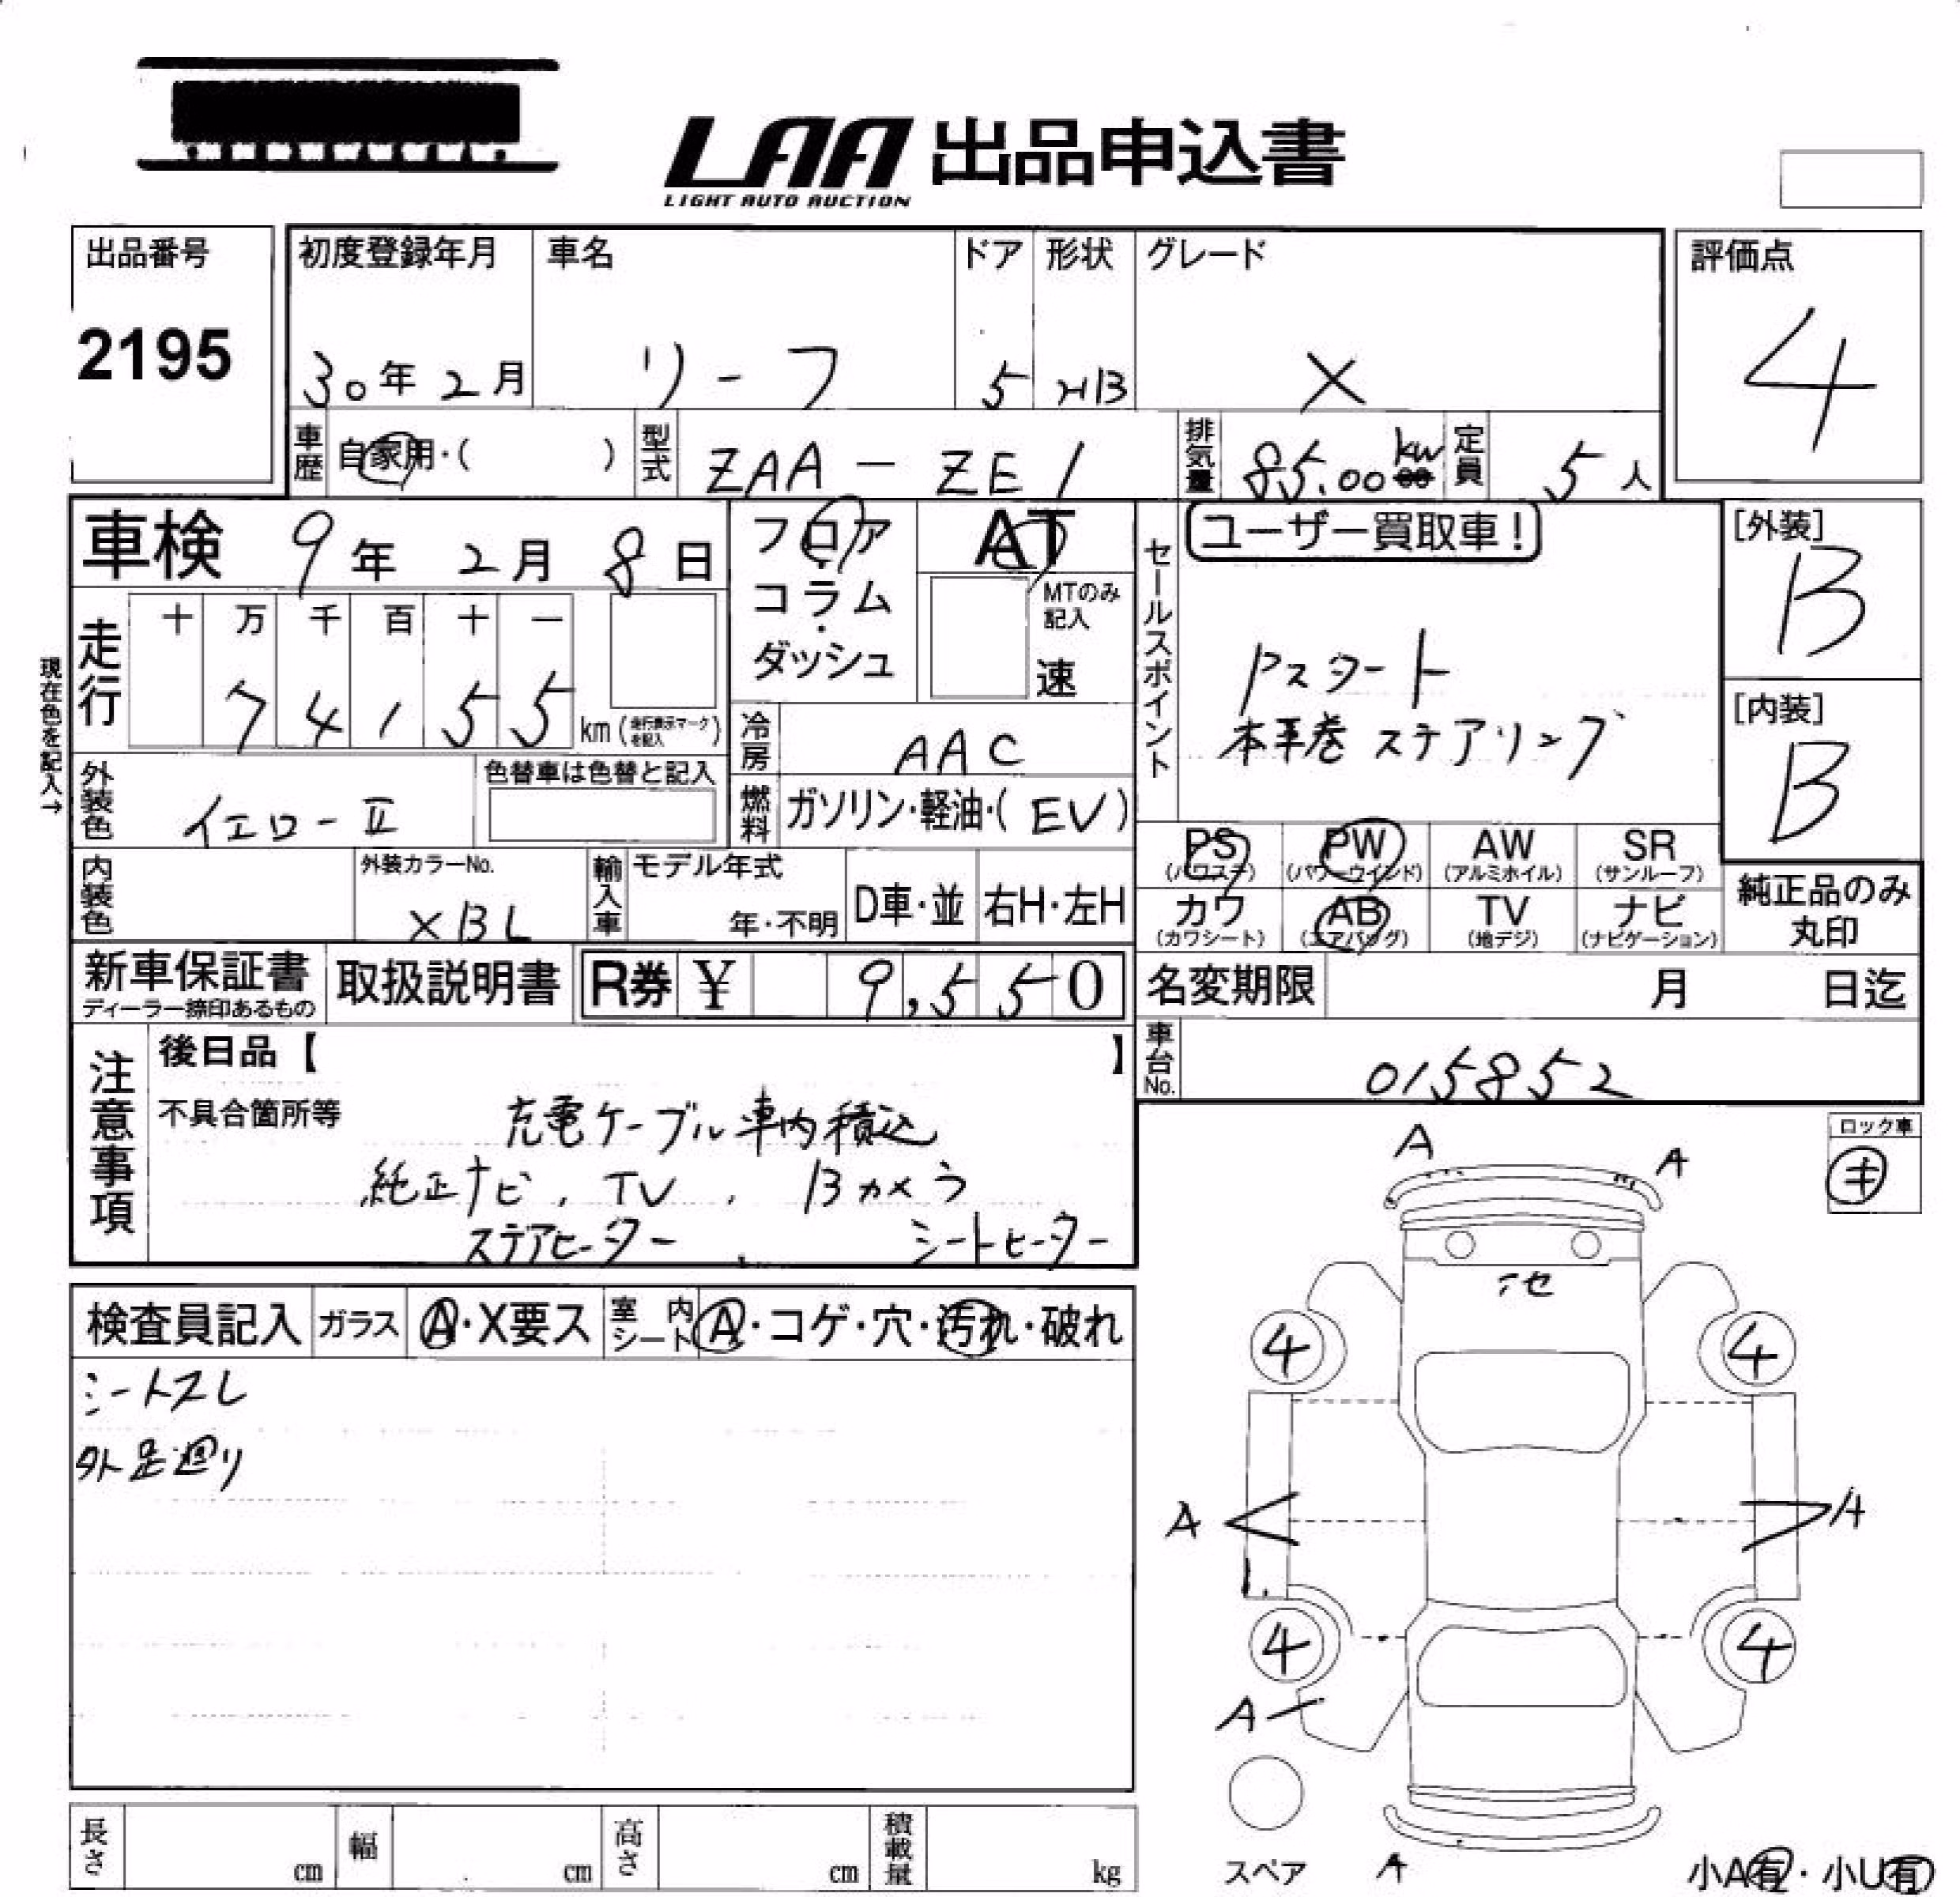 LAA 出品申込書
LIGHT AUTO AUCTION
出品番号
2195
初度登録年月
30年 2月
車名
リーフ
ドア
5
形状
HB
グレード
X
評価点
4
車歴
自家用・( )
型式
ZAA-ZE1
排気量
85.00 kw
定員
5人
車検 9年 2月 8日
フロア・コラム・ダッシュ
AT
MTのみ記入
速
セールスポイント
ユーザー買取車!
Pスタート
本革巻ステアリング
[外装]
B
[内装]
B
現在色を記入→
走行
十 万 千 百 十 一
7 4 1 5 5
km (走行表示マークを記入)
冷房
AAC
外装色
イエローⅡ
色替車は色替と記入
燃料
ガソリン・軽油・( EV )
PS (パワステ)
PW (パワーウインド)
AW (アルミホイル)
SR (サンルーフ)
カワ (カワシート)
AB (エアバッグ)
TV (地デジ)
ナビ (ナビゲーション)
純正品のみ丸印
内装色
外装カラーNo.
XBL
輸入車
モデル年式
年・不明
D車・並
右H・左H
新車保証書
ディーラー捺印あるもの
取扱説明書
R券 ¥ 9,550
名変期限 月 日迄
車台No.
015852
注意事項
後日品【 】
不具合箇所等
充電ケーブル車内積込
純正ナビ、TV、Bカメラ
ステアヒーター、シートヒーター
ロック車
キ
検査員記入
ガラス
A・X要ス
室内シート
A・コゲ・穴・汚れ・破れ
シートスレ
外足廻り
A
A
4
4
A
A
4
4
A
スペア
A
小A有・小U有
長さ cm
幅 cm
高さ cm
積載量 kg